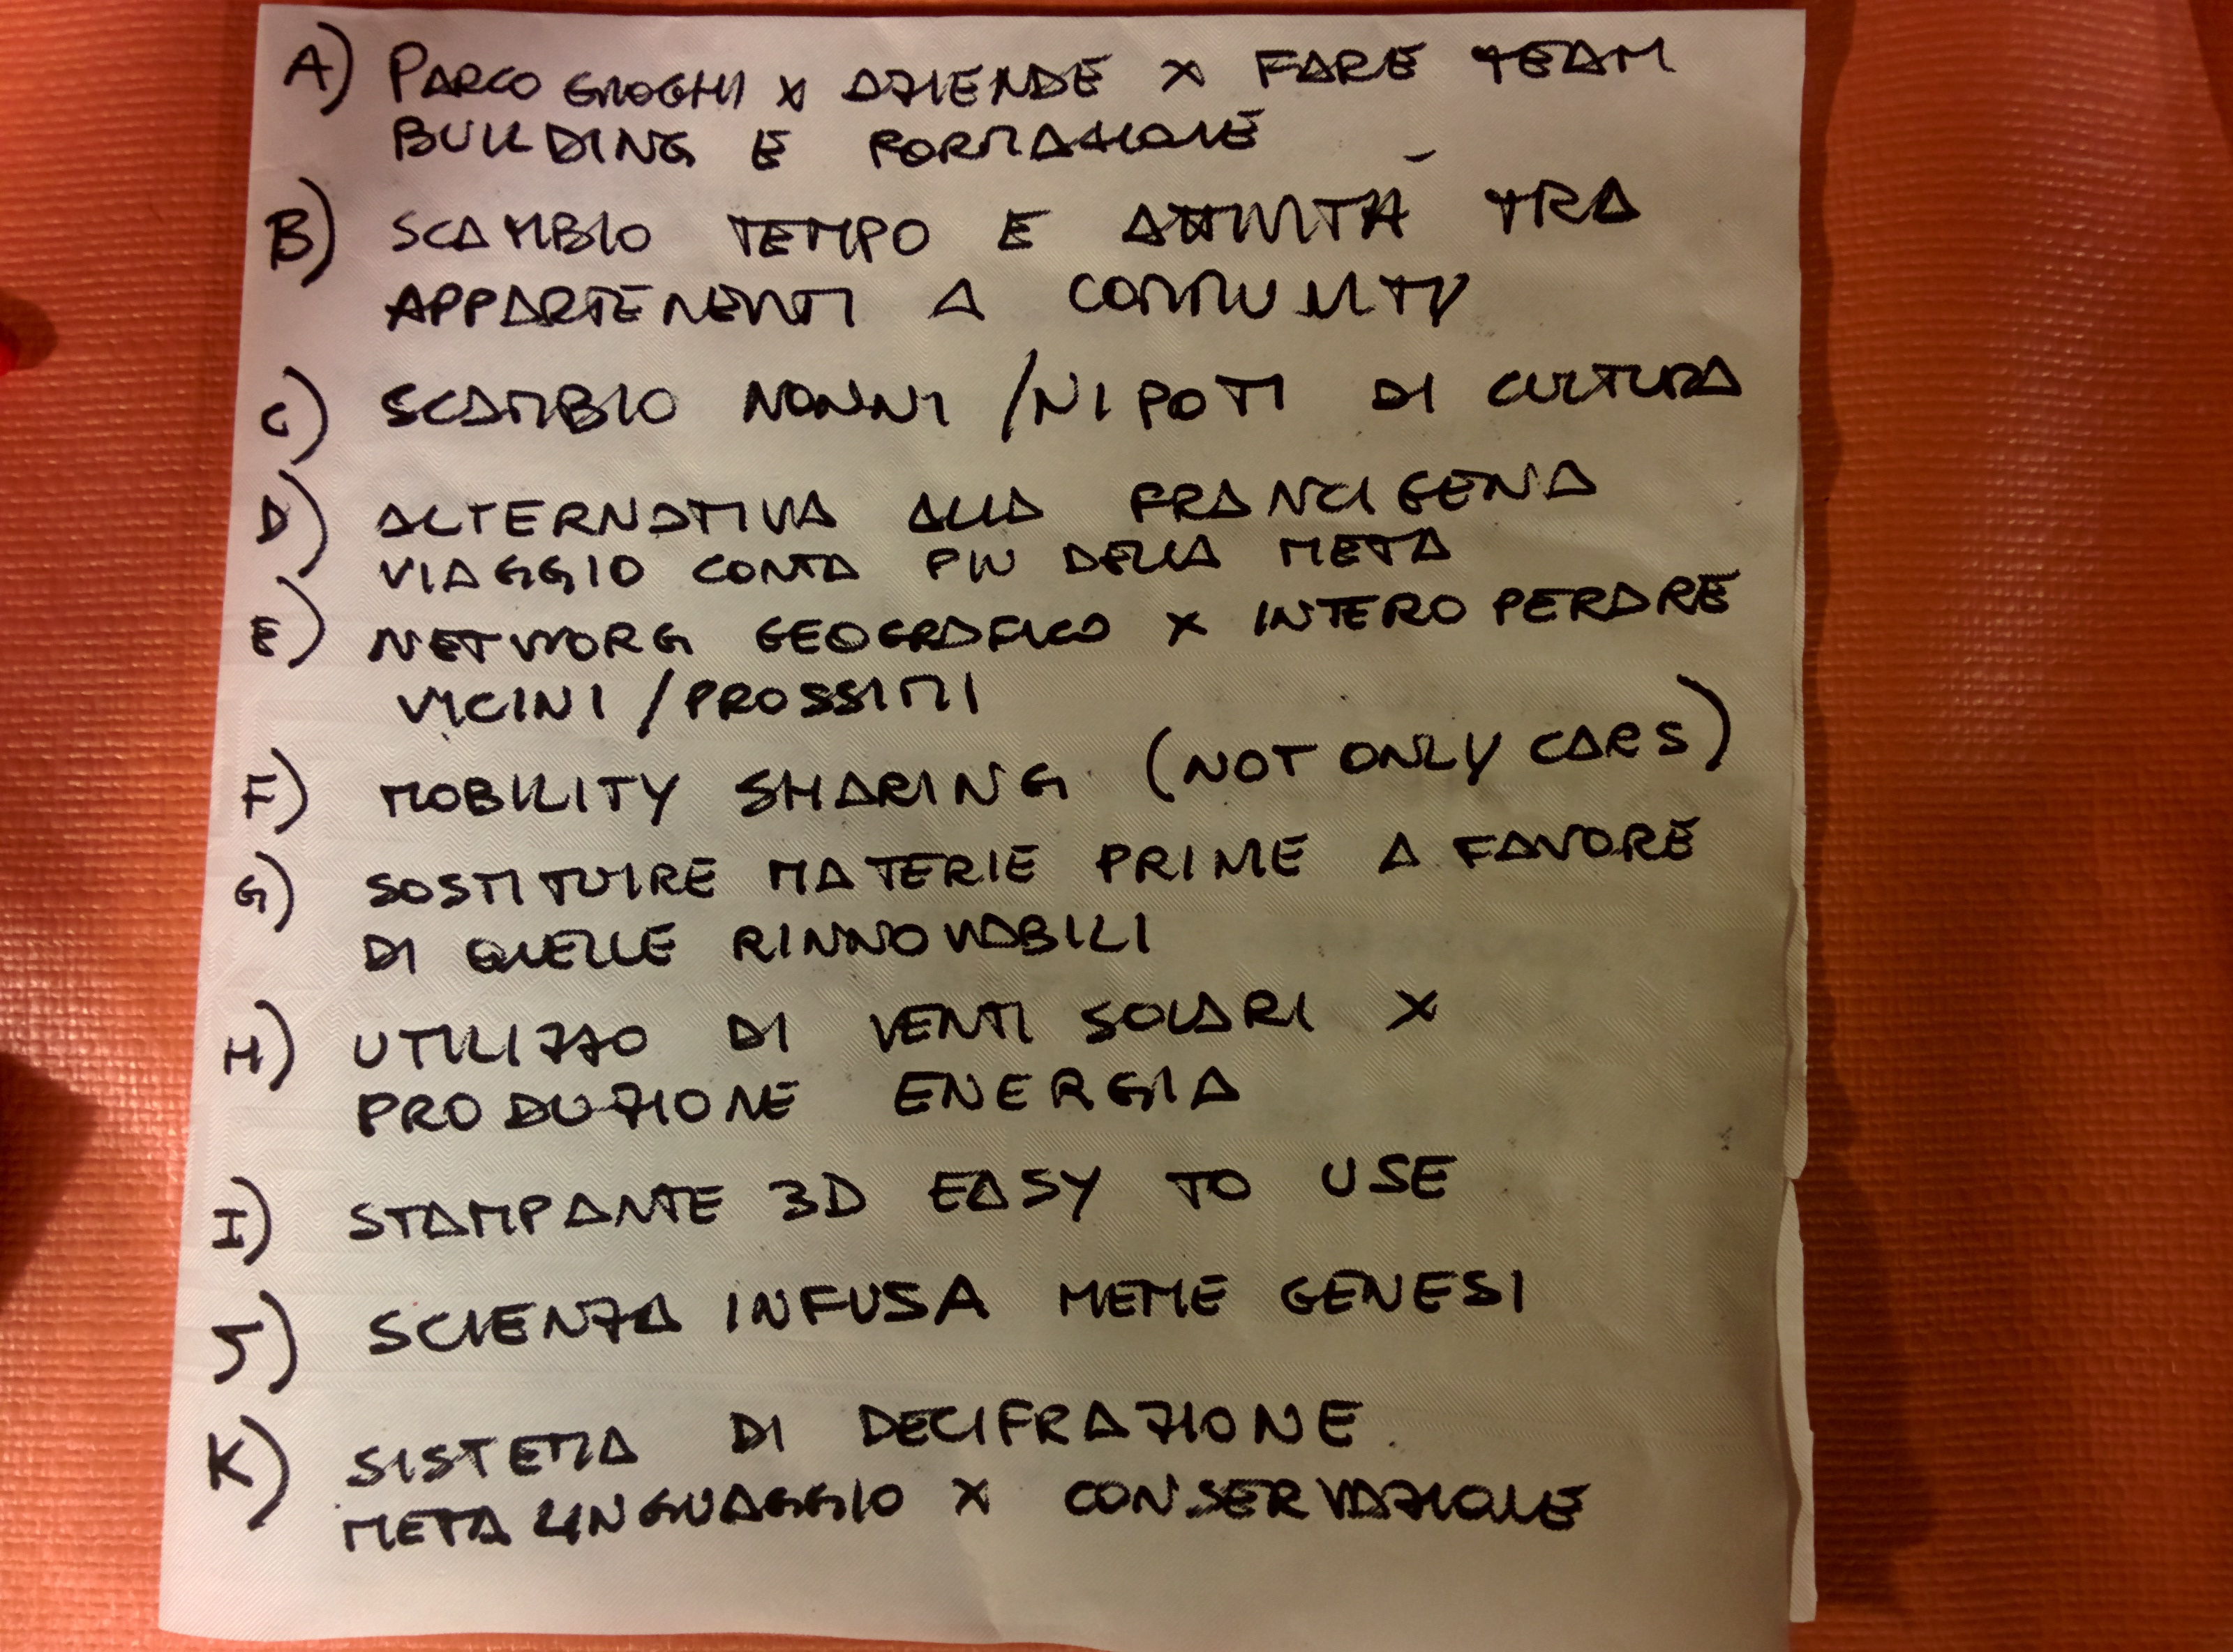 A) PARCO GIOGHI X AZIENDE X FARE TEAM
BUILDING E FORMAZIONE
B) SCAMBIO TEMPO E ATTIVITÀ TRA
APPARTENENTI A COMMUNITY
C) SCAMBIO NONNI / NIPOTI DI CULTURA
D) ALTERNATIVA ALLA FRANCIGENA
VIAGGIO CONTA PIU DELLA META
E) NETWORG GEOGRAFICO X INTEROPERARE
VICINI / PROSSIMI
F) MOBILITY SHARING (NOT ONLY CARS)
G) SOSTITUIRE MATERIE PRIME A FAVORE
DI QUELLE RINNOVABILI
H) UTILIZZO DI VENTI SOLARI X
PRODUZIONE ENERGIA
I) STAMPANTE 3D EASY TO USE
J) SCIENZA INFUSA MEME GENESI
K) SISTEMA DI DECIFRAZIONE
META LINGUAGGIO X CONSERVAZIONE